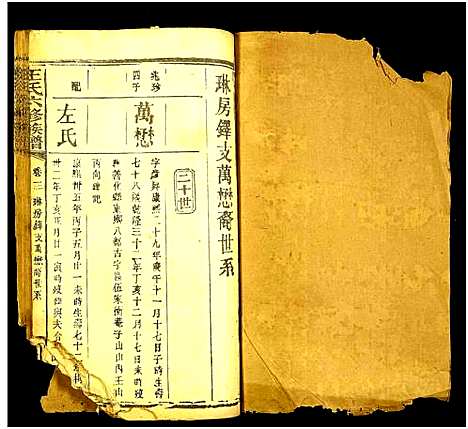 琳房鐸支萬懋裔世系
二十世
兆珍
四子
萬懋
字鐸康熙二十九年十一月十七日子時生壽
七十八乾隆三十二年丁亥十二月十七日未時歿
善化縣八都古字伍家衝菴子山山內壬山
丙向碑記
配
左氏
康熙卅五年丙子五月廿一未時生壽七十二
卅二年丁亥正月廿一寅時歿與夫合
王氏六修族譜
卷三
琳房鐸支萬懋裔世系